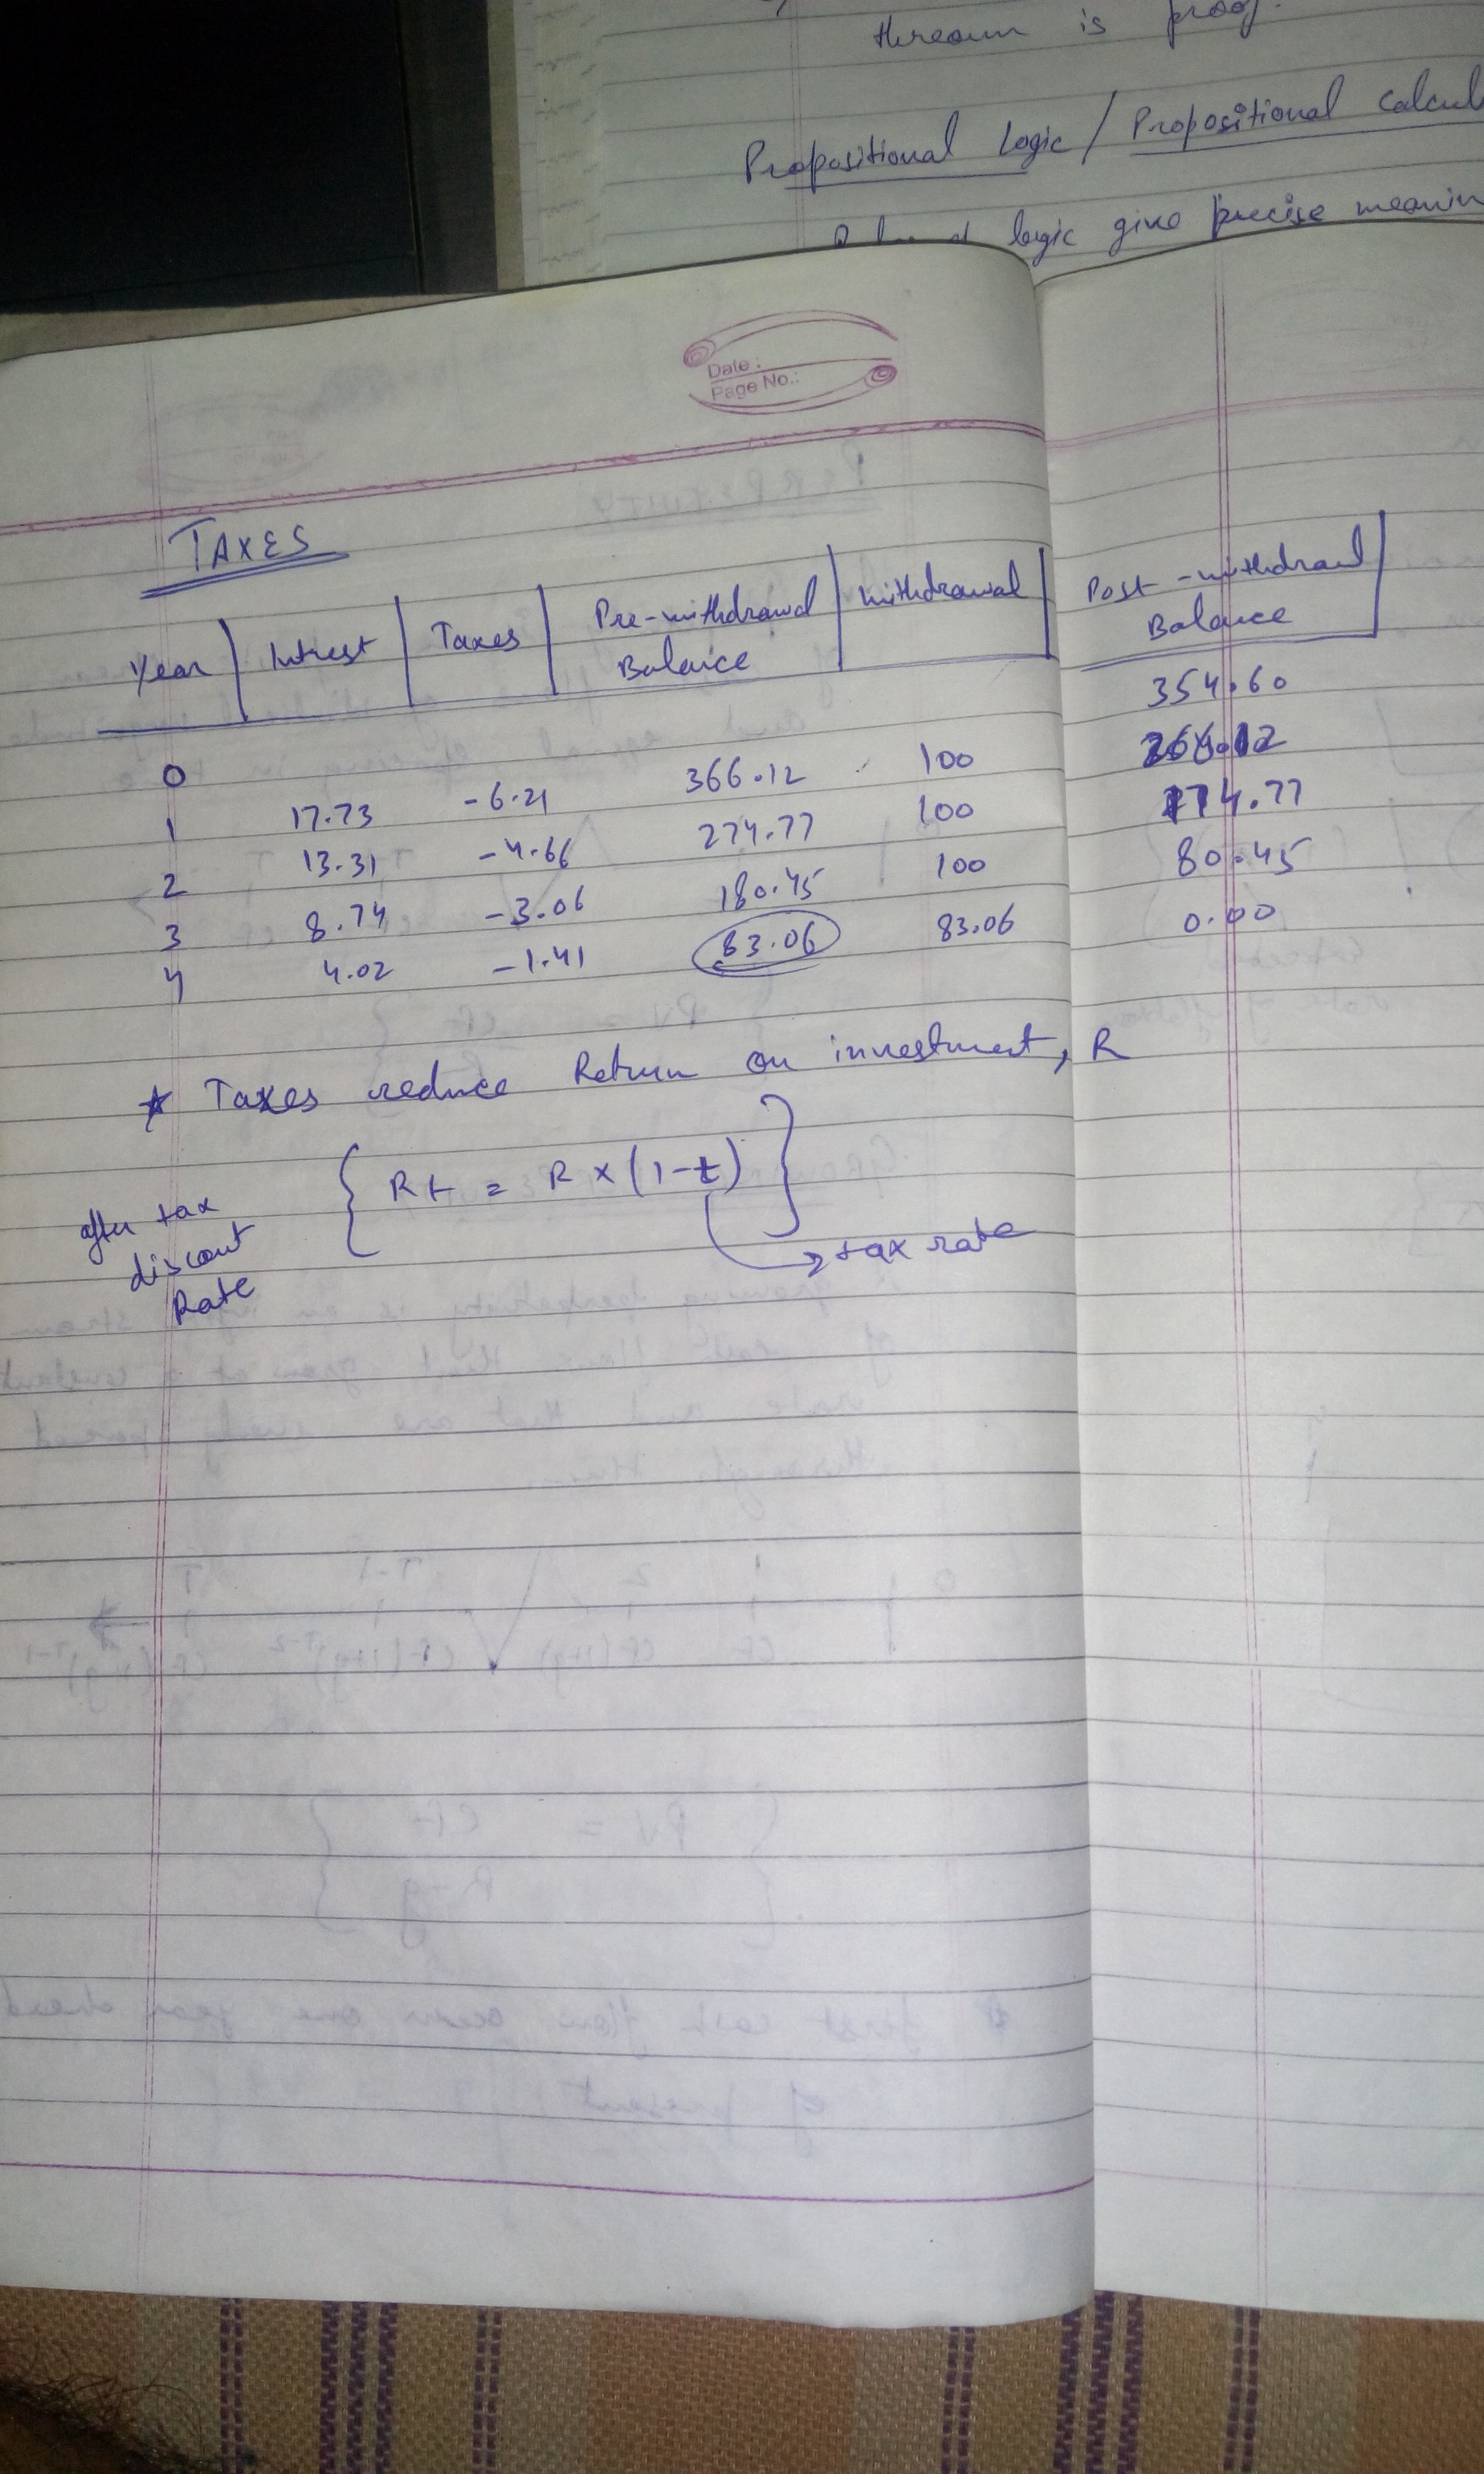 threoum is proof.
Propositional Logic / Propositional Calcul
logic give precise meanin
Date :
Page No.:
TAXES
Year | Intrest | Taxes | Pre-withdrawal Balance | Withdrawal | Post-withdrawl Balance
0 354.60
1 17.73 -6.21 366.12 100 266.12
2 13.31 -4.66 274.77 100 174.77
3 8.74 -3.06 180.45 100 80.45
4 4.02 -1.41 83.06 83.06 0.00
* Taxes reduce Return on investment, R
after tax discout Rate { Rt = R × (1-t) }
→ tax rate